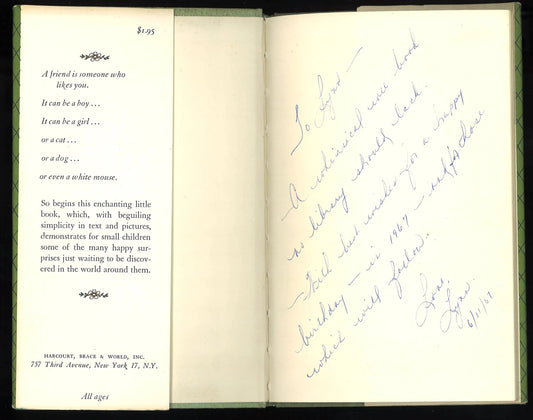 $1.95
A friend is someone who
likes you.
It can be a boy...
It can be a girl...
or a cat...
or a dog...
or even a white mouse.
So begins this enchanting little
book, which, with beguiling
simplicity in text and pictures,
demonstrates for small children
some of the many happy sur-
prises just waiting to be discov-
ered in the world around them.
HARCOURT, BRACE & WORLD, INC.
757 Third Avenue, New York 17, N.Y.
All ages
To
A whimsical wee book
no library should lack.
With best wishes for a happy
birthday — in 1967 — and for those
which will follow.
Love
6/11/67